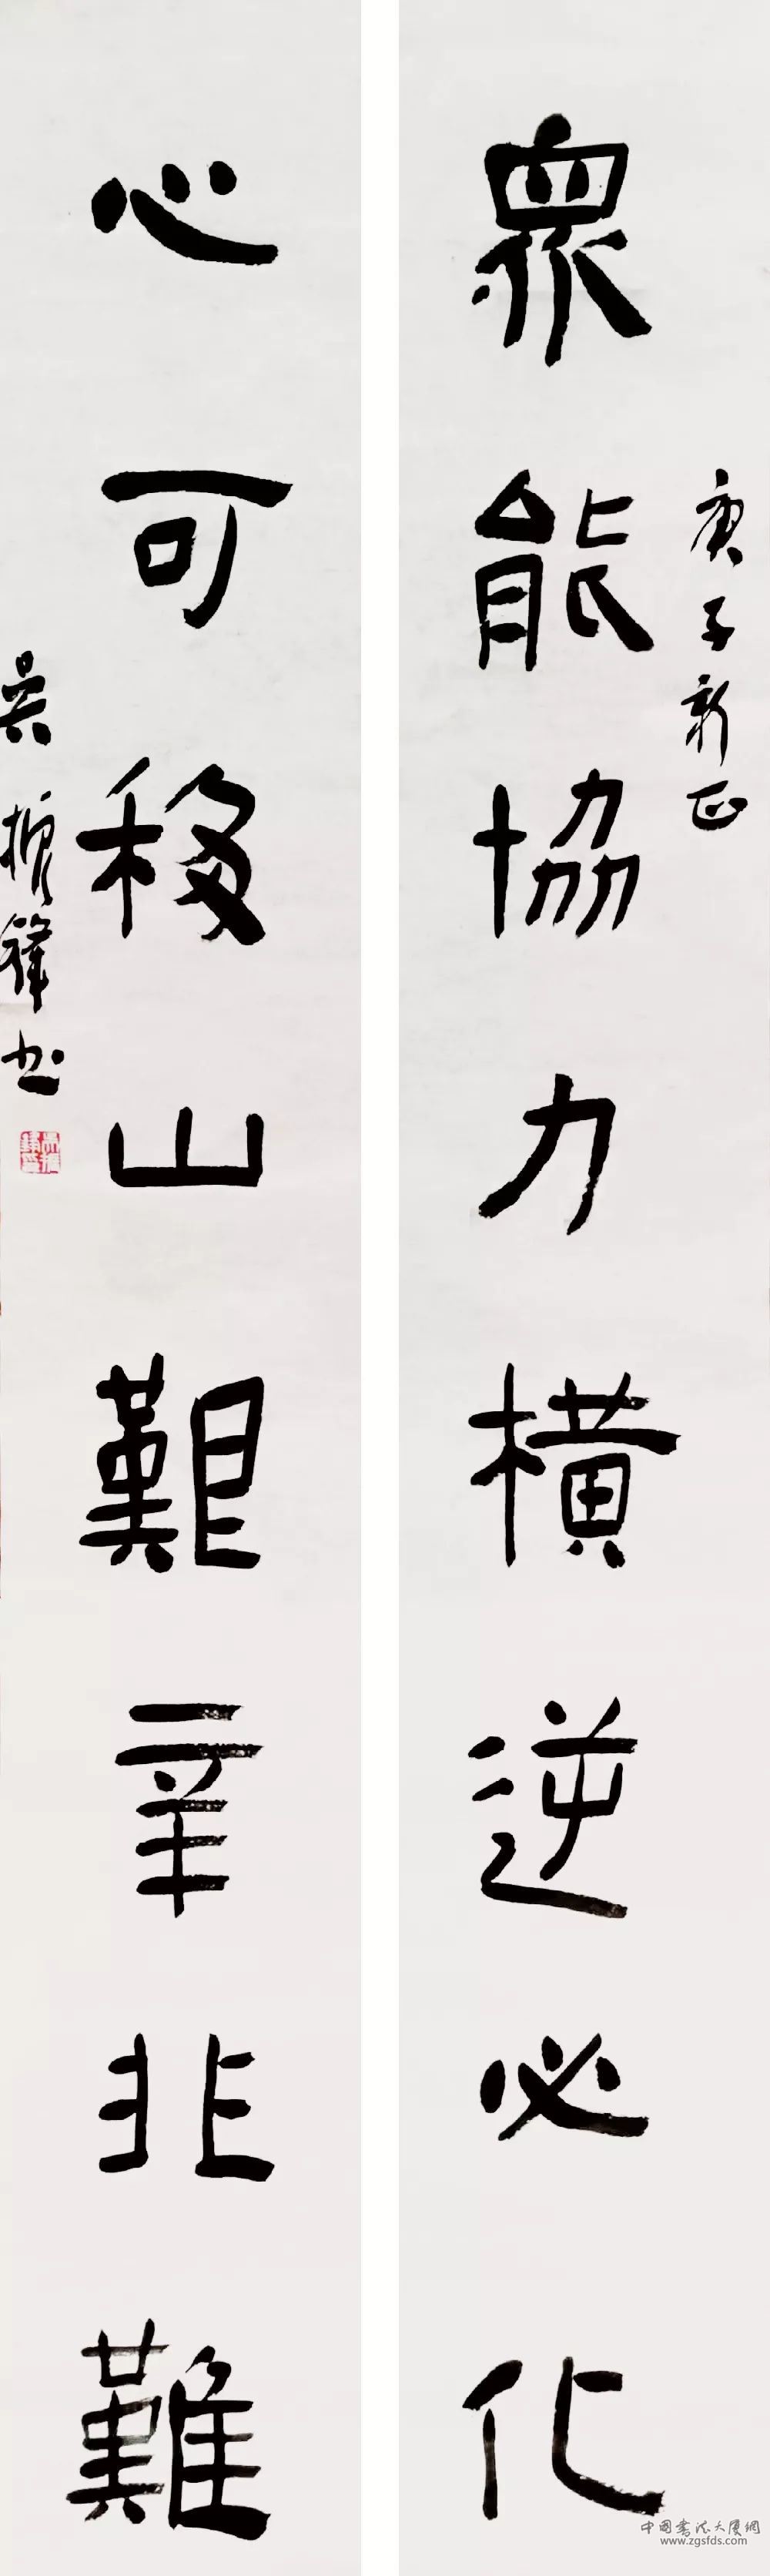 庚子新正
眾能協力橫逆必化
心可移山艱辛非難
吳振鋒书
中国书法大厦網
www.zgsfds.com